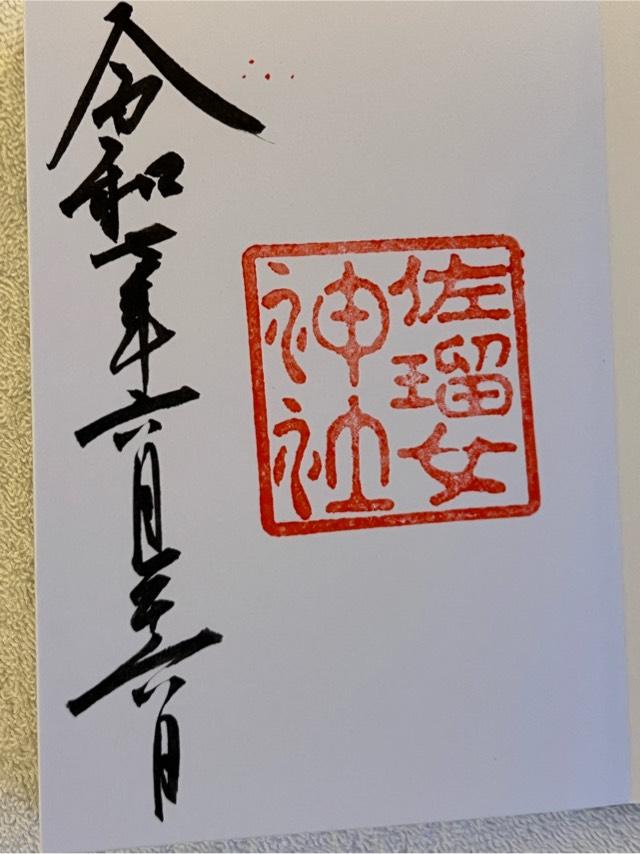 佐瑠女
神社
令和七年六月二十六日